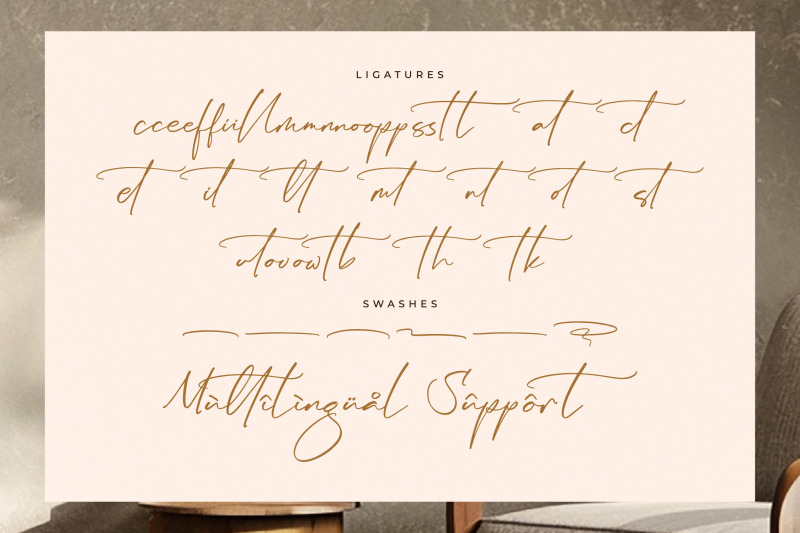 LIGATURES
cceeffiillmmnnooppsstt at ct
et it lt mt nt ot st
utovowtb th tk
SWASHES
Mùltîlìngüål Sûppôrt